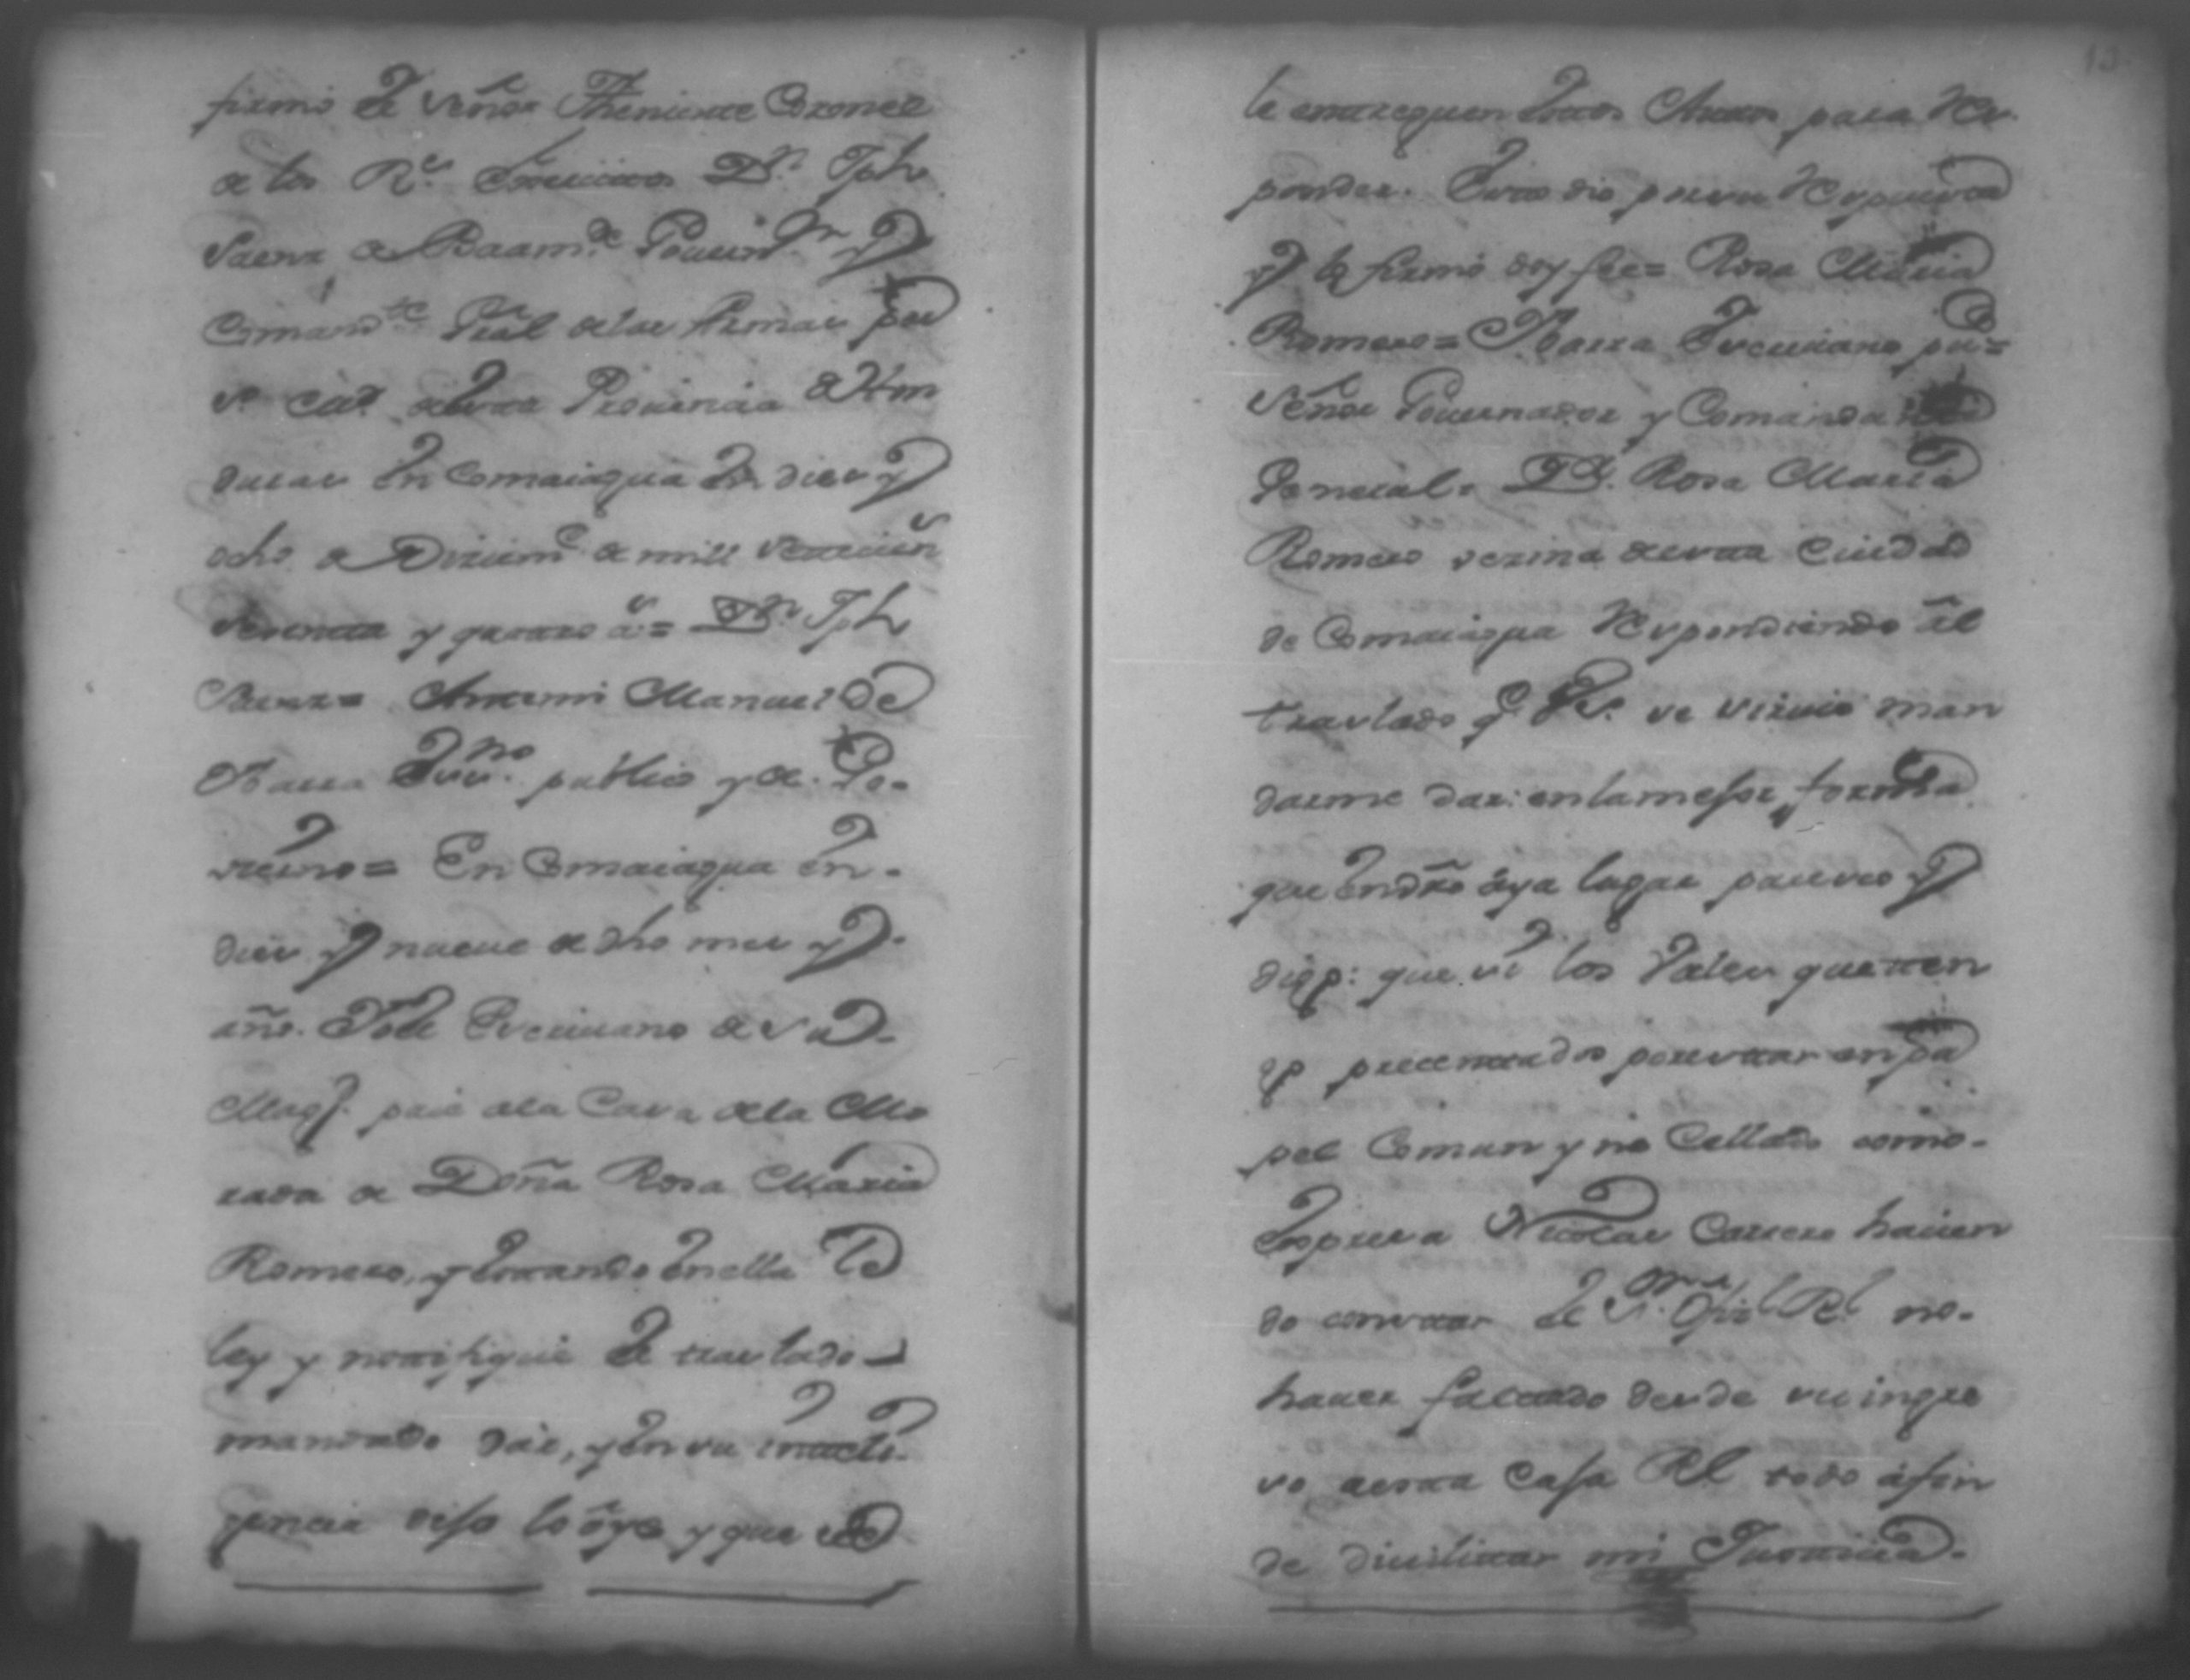 firmó el Señor Theniente Coronel
de los R.s Exercitos D.n Jph
Saenz de Baam.de Gouern.or y
Comand.te Gral de las Armas por
S. M. de esta Prouincia de Hon
duras en Comaiagua en diez y
ocho de Diziem.e de mill setecien.s
sesenta y quatro a.s = D.n Jph
Saenz = Antemi Manuel de
Ybarra Ess.no publico y de Go-
uierno = En Comaiagua en
diez y nueue de dho mes y
año. Yo el Escriuano de su
Mag.d pasé ala Casa dela Mo
rada de Doña Rosa Maria
Romero, y estando en ella le
ley y notifiqué el traslado
mandado dár, y en su inteli-
gencia dijo lo óye y que se
le entreguen estos Autos para Res
ponder. Esto dio por su Respuesta
y lo firmó doy fee = Rosa Maria
Romero = Ybarra Escriuano pu =
Señor Gouernador y Comandante
General = D.a Rosa Maria
Romero vezina de esta Ciudad
de Comaiagua Respondiendo ál
traslado q.e VS. se siruió man
darme dar: en la mejor forma
que en dro áya lugar paresco y
digo: que si los Vales que ten
go presentados por estar en pa
pel Comun y no Sellado como-
expresa Nicolas Carrero hauien
do constar el S.or Ofizl Rl no-
hauer faltado desde su ingre
so aesta Casa Rl todo á fin
de diuilitar mi Justicia-